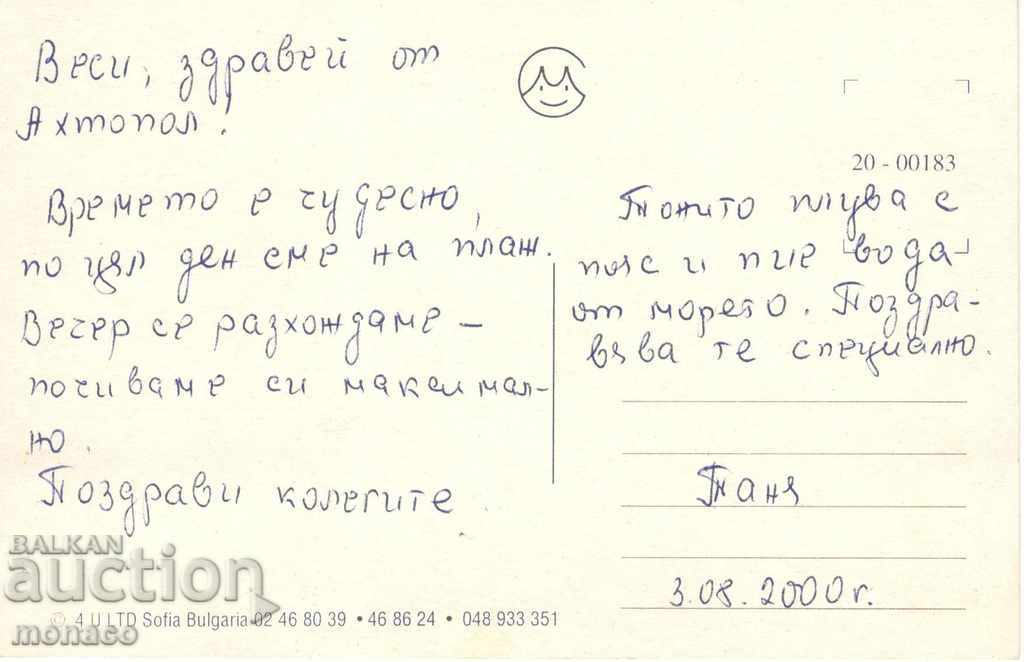 Веси, здравей от
Ахтопол!
Времето е чудесно,
по цял ден сме на плаж.
Вечер се разхождаме –
почиваме си максимал-
но.
Поздрави колегите
20 - 00183
Тонито плува с
пояс и пие вода
от морето. Поздра-
вява те специално.
Таня
3.08.2000 г.
BALKAN
auction
© 4 U LTD Sofia Bulgaria 02 46 80 39 • 46 86 24 • 048 933 351
monaco